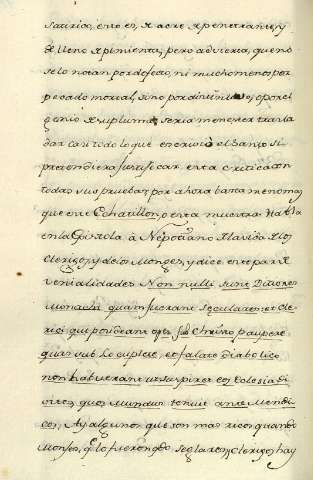 satirico, esto es, de acre de penetrante, y
de lleno de pimienta, pero advierta, que no
se lo notan por defecto, ni mucho menos por
pecado mortal, sino por o por el
genio de su pluma seria menester trasla
dar casi todo lo que escrivió el Santo si
pretendiera justificar esta critica con
todas sus pruebas; por ahora basta no mas
que este o esta muestra. Habla
en la Epistola à Nepotiano de la vida de los
Clerigos, y de los Monges, y dice entre
venialidades Non nulli sunt Ditiores
Monachi quam fuerant seculares et cle
rici qui posideant opes sub Christo paupere
quas sub locuplete, et falace diabolo
non habuerant ut suspiret eos Eclesia di
vites, quos mundus tenuit ante Mendi
cos, Ay algunos que son mas ricos quando
Monjes, q.e lo fueron seglares; Clerigos hay